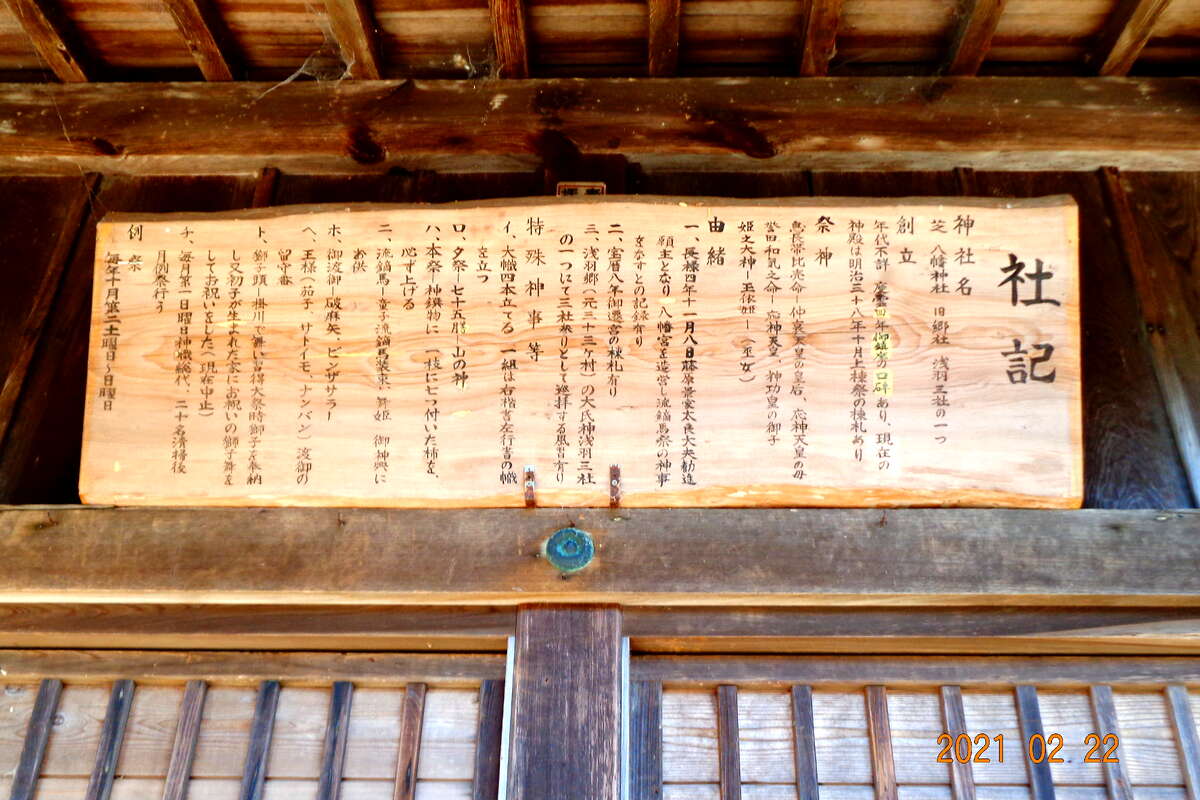 社記
神社名
芝 八幡神社 旧郷社 浅羽三社の一つ
創立
年代不詳 慶雲四年御鎮座の口碑あり、現在の
神殿は明治三十八年十月上棟祭の棟札あり
祭神
息長帯比売命－仲哀天皇の皇后、応神天皇の母
誉田和気之命－応神天皇、神功皇の御子
姫之大神－玉依姫－(巫女)
由緒
一、長禄四年十一月八日藤原景宏太良大夫勧進
願主となり、八幡宮を造営し流鏑馬祭の神事
をなすとの記録有り
二、宝暦八年御遷宮の棟札有り
三、浅羽郷(元三十三ヶ村)の大氏神浅羽三社
の一つにて三社参りとして巡拝する風習有り
特殊神事等
イ、大幟四本立てる 一組は右楷書左行書の幟
を立つ
ロ、夕祭－七十五膳－山の神
ハ、本祭－神饌物に 一枝に七つ付いた柿を、
必ず上げる
ニ、流鏑馬－童子流鏑馬装束、舞姫 御神輿に
お供
ホ、御渡御－破麻矢、ビンザサラー
ヘ、王様(茄子、サトイモ、ナンバン)渡御の
留守番
ト、獅子頭－掛川で舞い習得大祭時獅子を奉納
し又初子が生まれた家にお祝いの獅子舞を
してお祝いをした(現在中止)
チ、毎月第一日曜日神職総代、二十名清掃後
月例祭行う
例祭
毎年十月第二土曜日～日曜日
2021 02 22